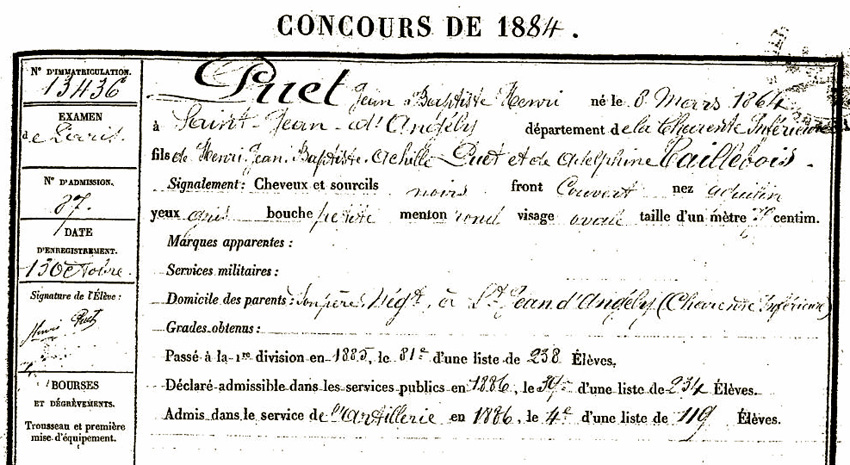 CONCOURS DE 1884.
N° D'IMMATRICULATION.
13436
EXAMEN
de Paris.
N° D'ADMISSION.
87.
DATE
D'ENREGISTREMENT.
13 Octobre.
Signature de l'Élève:
Henri Puet
BOURSES
ET DÉGRÈVEMENTS.
Trousseau et première
mise d'équipement.
Puet Jean Baptiste Henri né le 8 Mars 1864
à Saint-Jean-d'Angély département de la Charente Inférieure
fils de Henri Jean Baptiste Achille Puet et de Adelphine Taillebois.
Signalement: Cheveux et sourcils noirs front Couvert nez aquilin
yeux gris bouche petite menton rond visage ovale taille d'un mètre centim.
Marques apparentes:
Services militaires:
Domicile des parents: Son père Nég^t, à S^t Jean d'Angély (Charente Inférieure)
Grades obtenus:
Passé à la 1re division en 1885, le 81e d'une liste de 238 Élèves.
Déclaré admissible dans les services publics en 1886, le 39e d'une liste de 234 Élèves.
Admis dans le service de l'Artillerie en 1886, le 4e d'une liste de 119 Élèves.